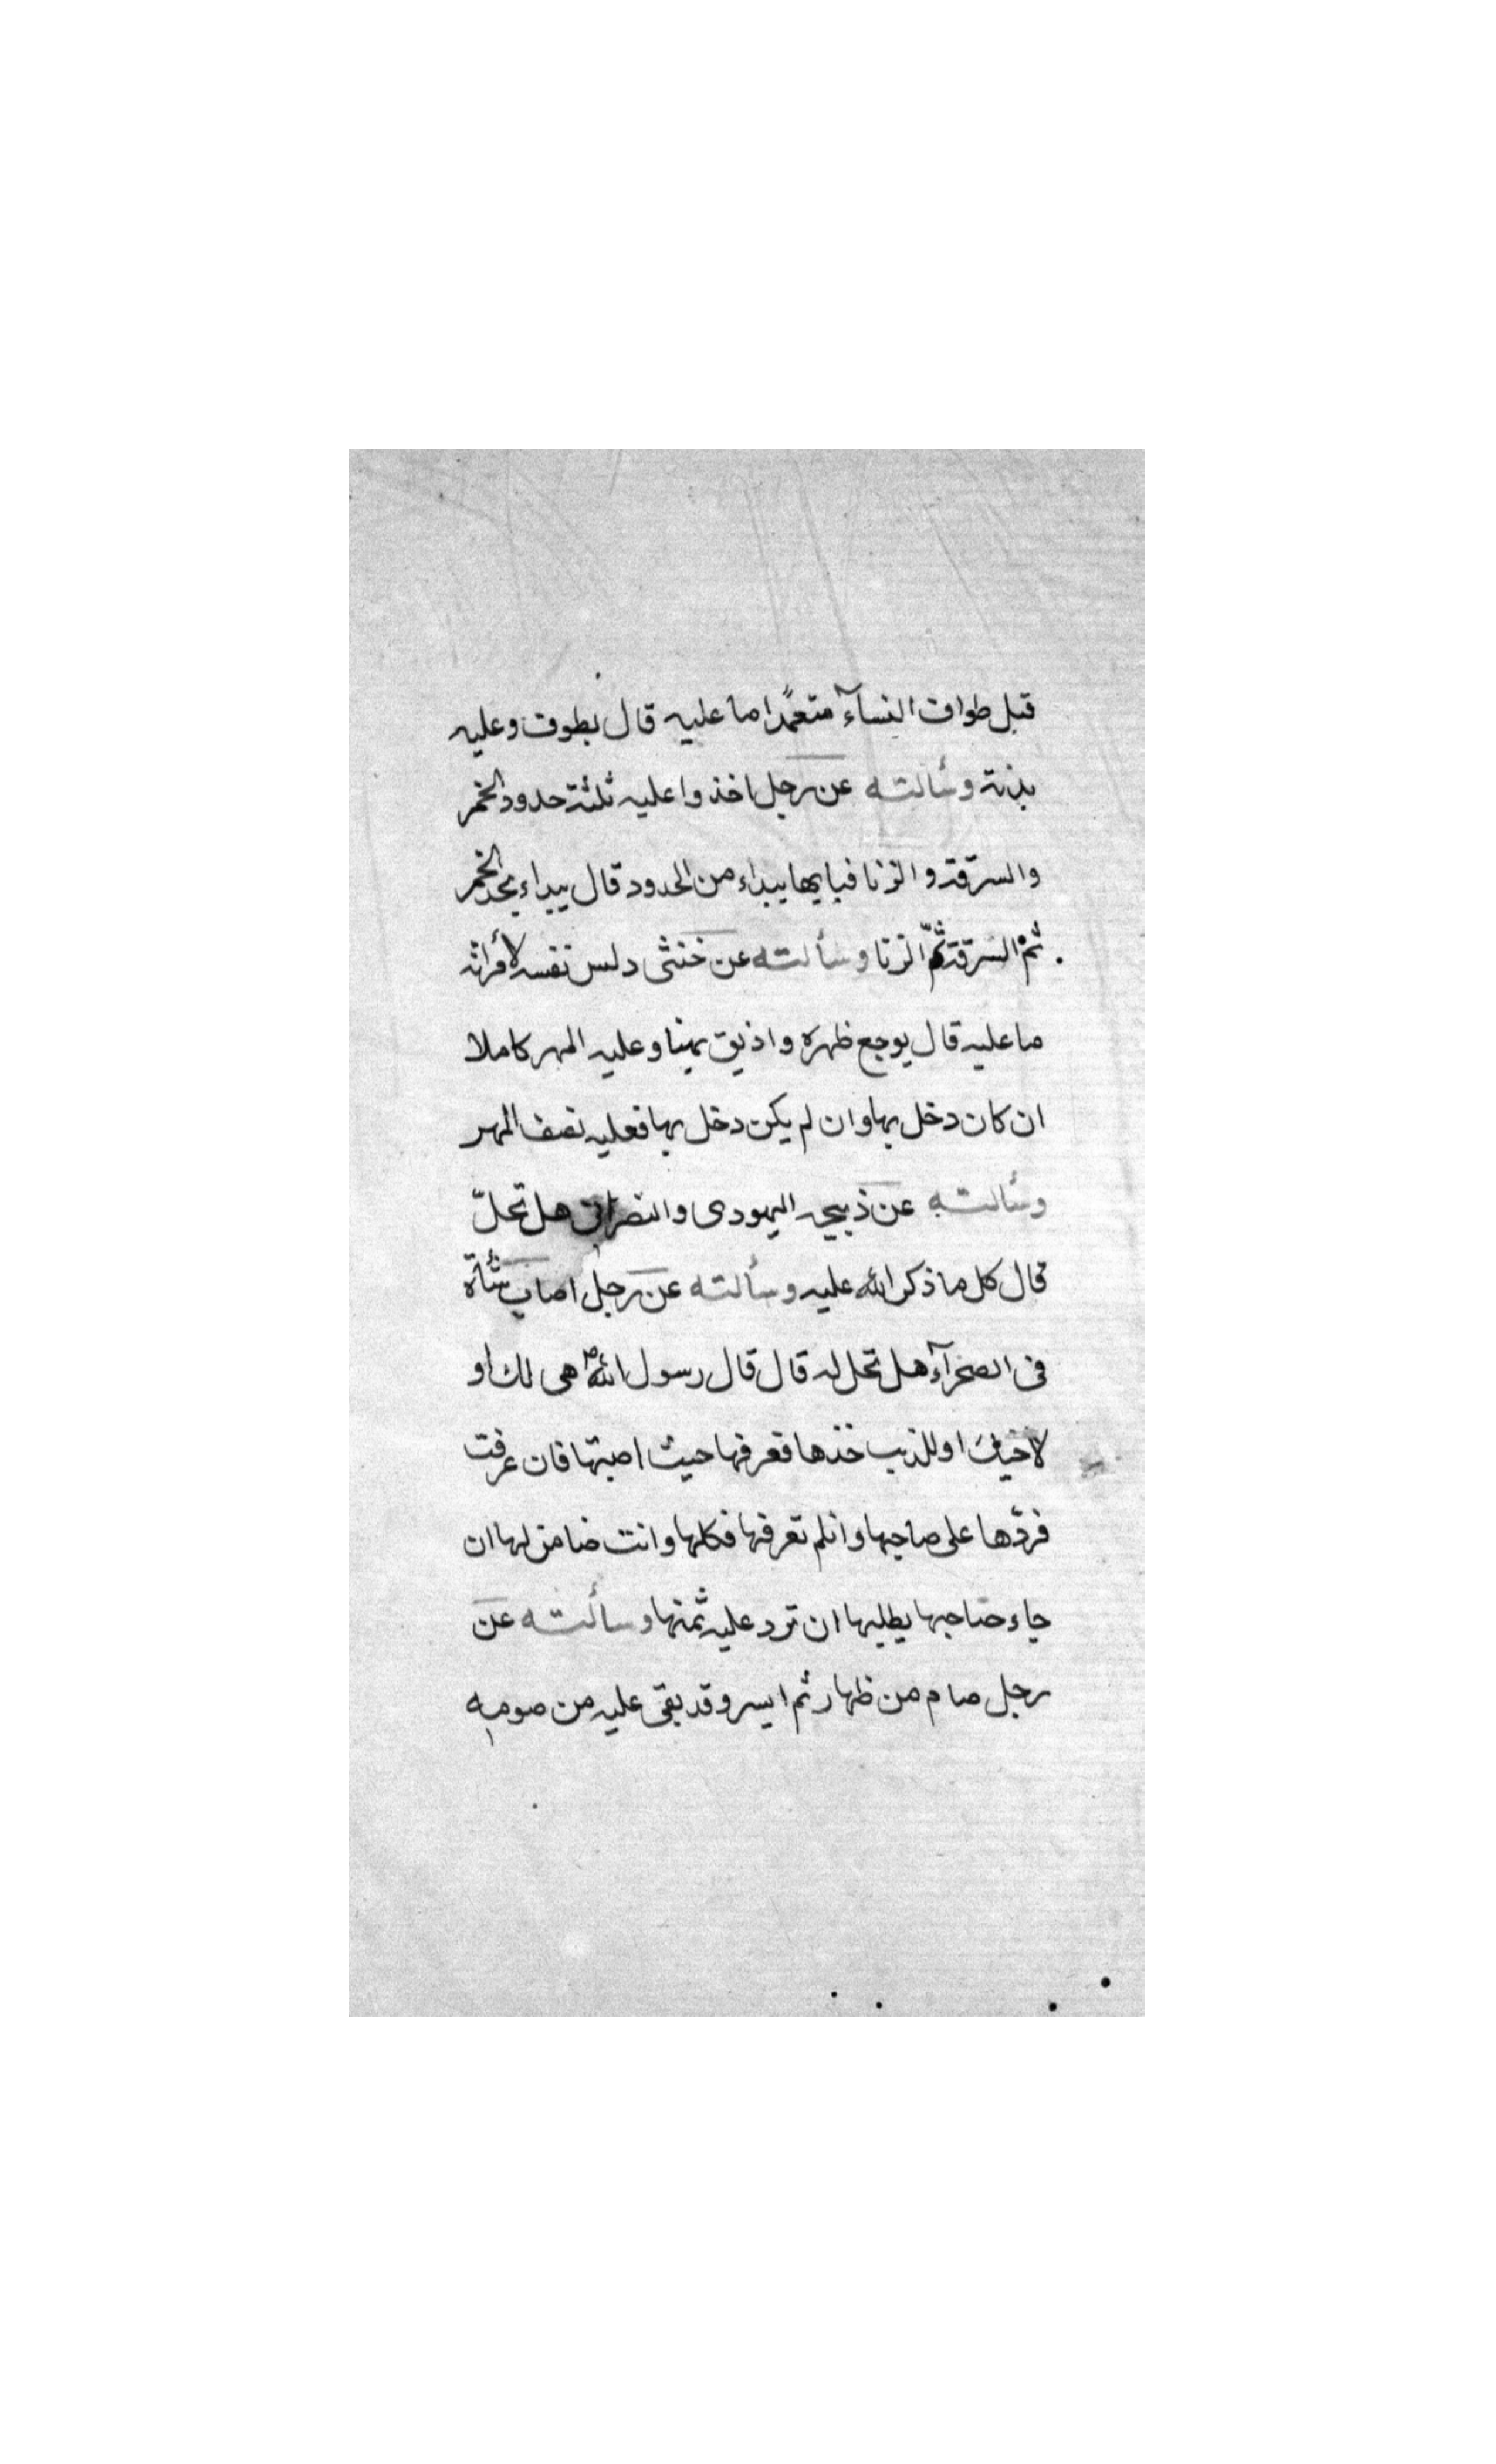 قبل طواف النسآء متعمّدًا ما عليه قال يطوف وعليه
بدنة وسألته عن رجل اخذوا عليه ثلثة حدود الخمر
والسرقة والزنا فبايها يبداء من الحدود قال يبداء بحد الخمر
ثم السرقة ثمّ الزنا وسألته عن خنثى دلس نفسه لأمراته
ما عليه قال يوجع ظهره واذيق يمينا وعليه المهر كاملا
ان كان دخل بها وان لم يكن دخل بها فعليه نصف المهر
وسألته عن ذبيحه اليهودى والنصرانى هل تحلّ
قال كل ما ذكر الله عليه وسألته عن رجل اصاب شأة
فى الصحرآء هل تحل له قال قال رسول الله ص هى لك او
لاخيك او للذيب خذها فعرفها حيث اصبتها فان عرفت
فردّها على صاحبها وانلم تعرفها فكلها وانت ضامن لها ان
جاء صاحبها يطلبها ان ترد عليه ثمنها وسألته عن
رجل صام من ظهار ثم ايسر وقد بقى عليه من صومه